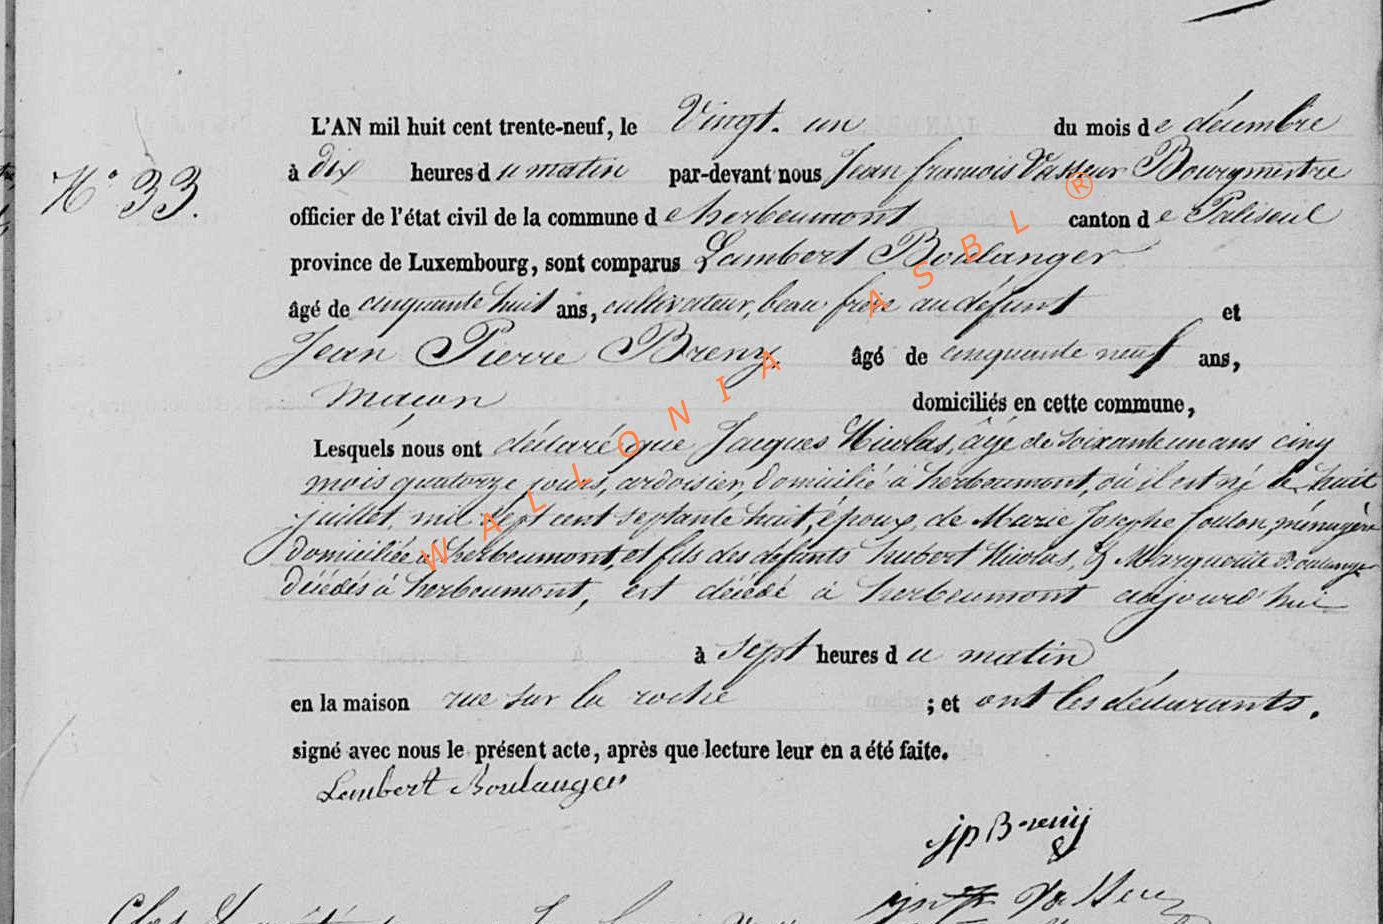 L'AN mil huit cent trente-neuf, le Vingt-un du mois de décembre
N° 33. à dix heures du matin par-devant nous Jean francois Vasseur Bourgmestre
officier de l'état civil de la commune de herbeumont canton de Paliseul
province de Luxembourg, sont comparus Lambert Boulanger
âgé de cinquante huit ans, cultivateur, beau frère au défunt et
Jean Pierre Breny âgé de cinquante neuf ans,
macon domiciliés en cette commune,
Lesquels nous ont déclaré que Jacques Nicolas, âgé de soixante un ans cinq
mois quatorze jours, ardoisier, domicilié à herbeumont, où il est né le huit
juillet mil sept cent septante huit, époux de Marie Josephe foulon, ménagère
domiciliée à herbeumont, et fils des défunts hubert Nicolas, & Marguerite Boulanger
décédés à herbeumont, est décédé à herbeumont aujourd'hui
à sept heures du matin
en la maison rue sur la roche ; et ont les déclarants.
signé avec nous le présent acte, après que lecture leur en a été faite.
Lambert Boulanger
jp Breny
WALLONIA ASBL ®